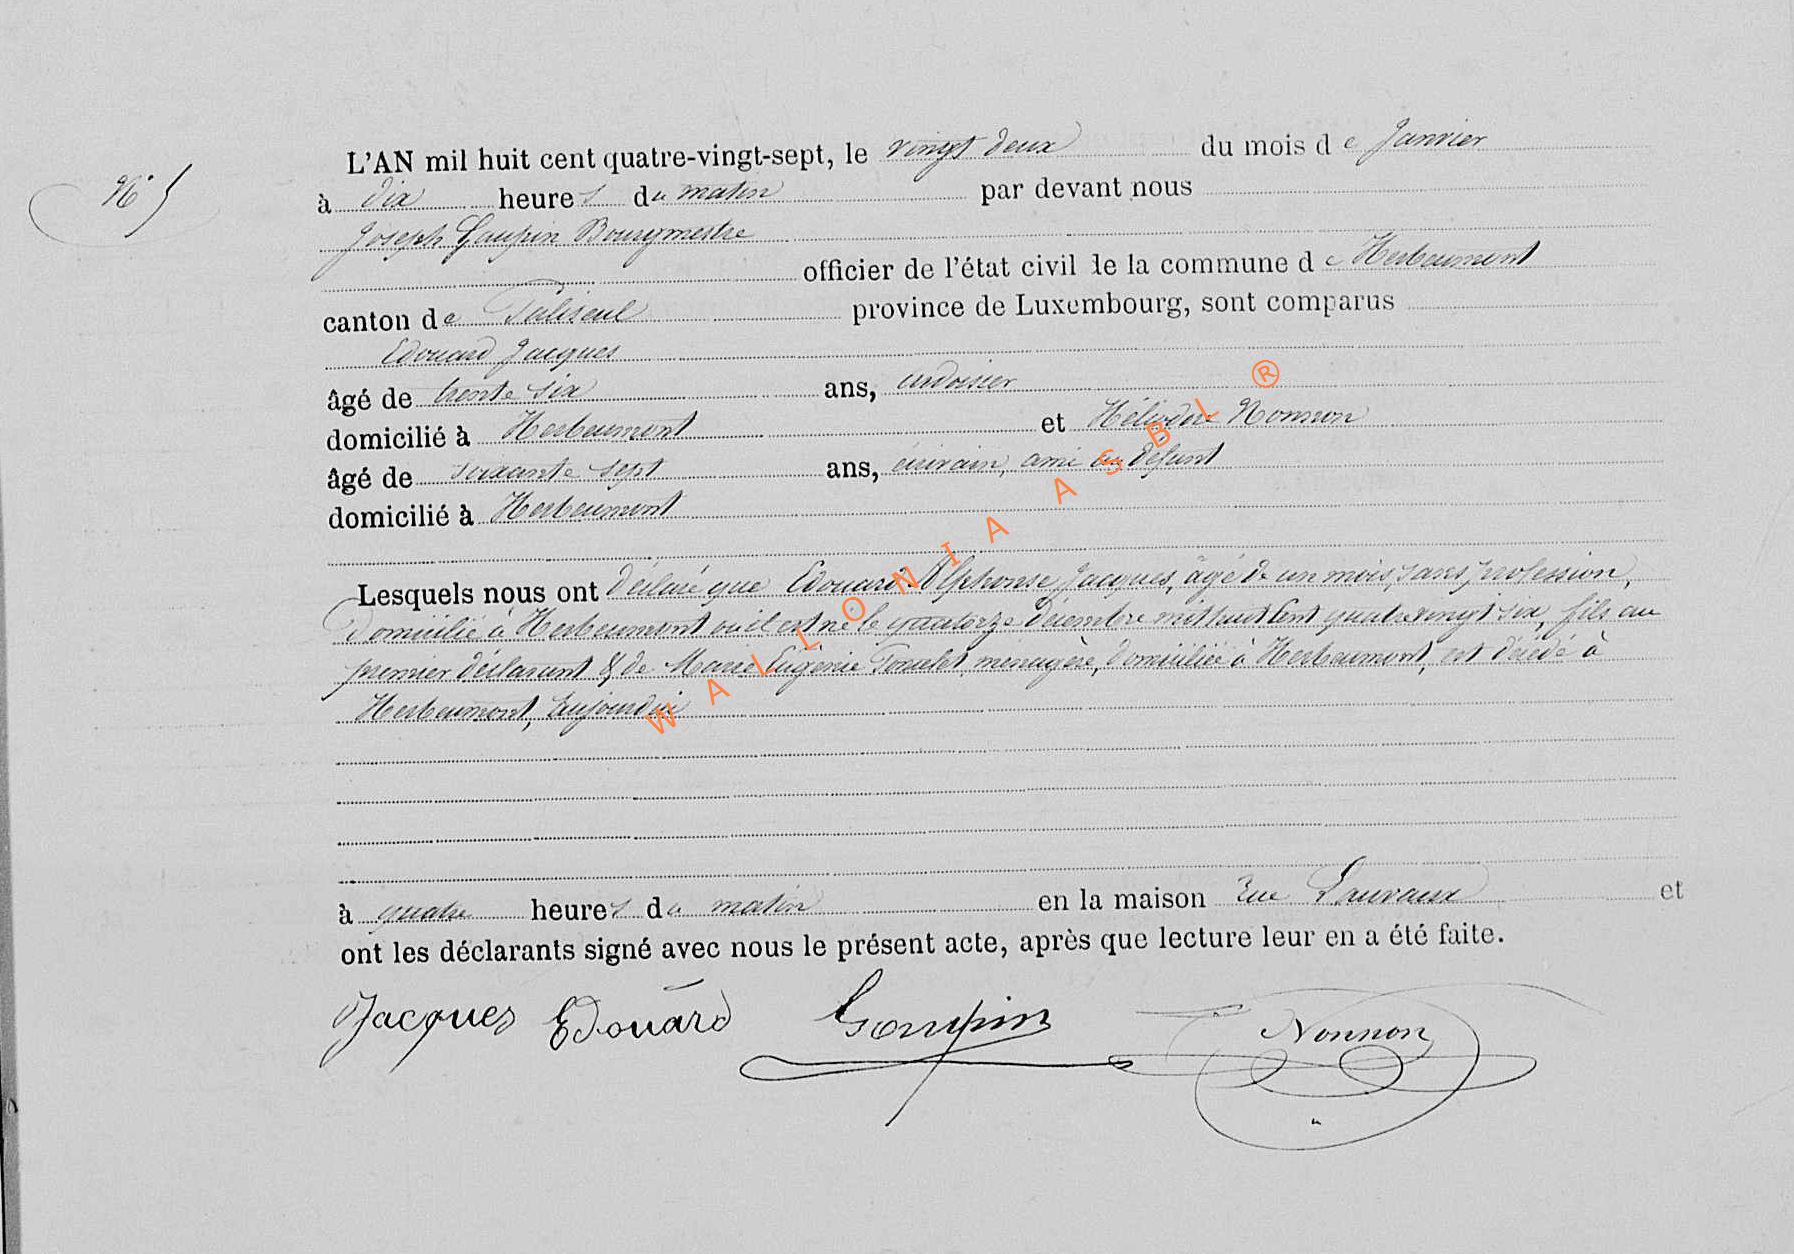 N° 5
L'AN mil huit cent quatre-vingt-sept, le vingt deux du mois de Janvier
à dix heures du matin par devant nous
Joseph Goupin Bourgmestre
officier de l'état civil de la commune de Herbeumont
canton de Paliseul province de Luxembourg, sont comparus
Edouard Jacques
âgé de trente six ans, ardoisier
domicilié à Herbeumont et Héliodore Nonnon
âgé de soixante sept ans, écrivain, ami du défunt
domicilié à Herbeumont
Lesquels nous ont déclaré que Edouard Alphonse Jacques, âgé de un mois, sans profession,
domicilié à Herbeumont où il est né le quatorze décembre mil huit cent quatre vingt six, fils au
premier déclarant & de Marie Eugénie ménagère, domiciliée à Herbeumont, est décédé à
Herbeumont, aujourd'hui
à quatre heures du matin en la maison rue et
ont les déclarants signé avec nous le présent acte, après que lecture leur en a été faite.
Jacques Edouard Goupin Nonnon
WALLONIA ASBL ®